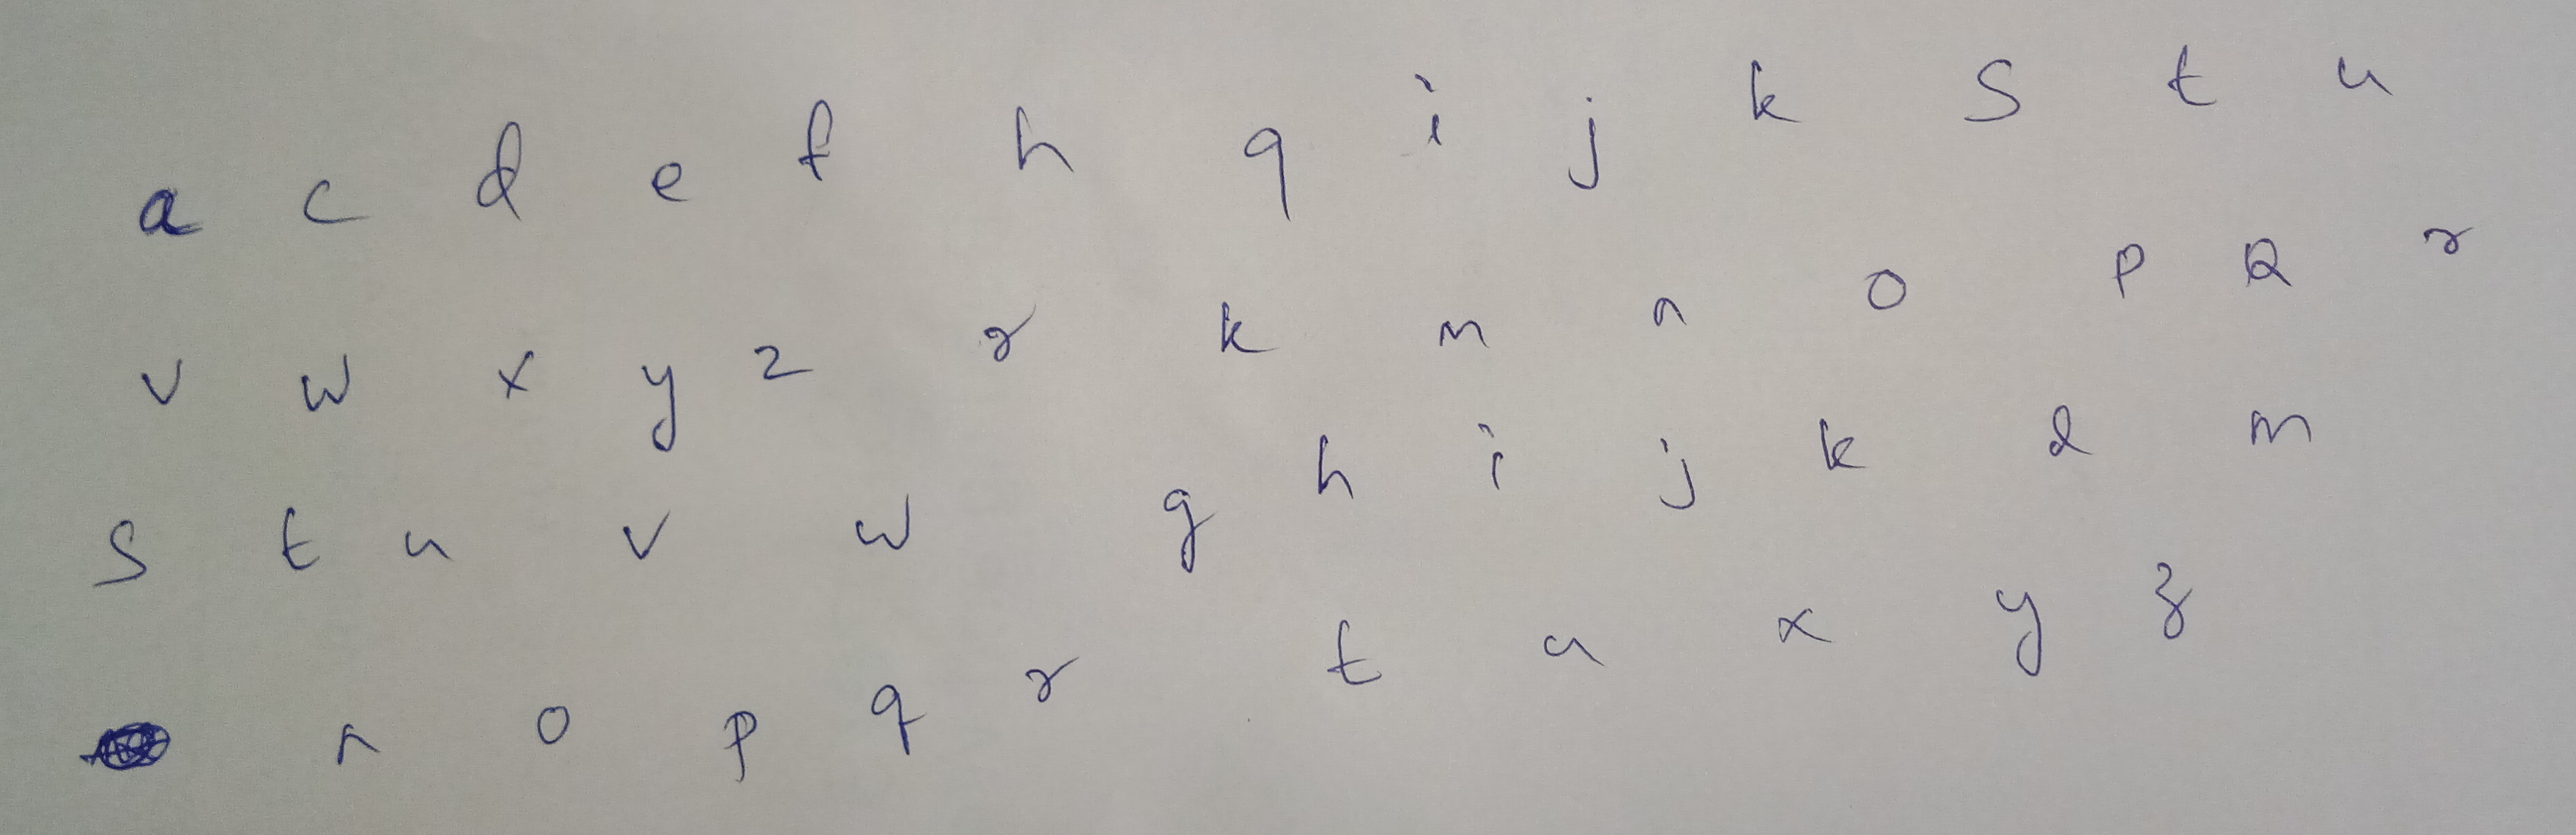 a c d e f h q i j k S t u
v w x y z r k m n o p Q r
S t u v w g h i j k l m
n o p q r t u x y z